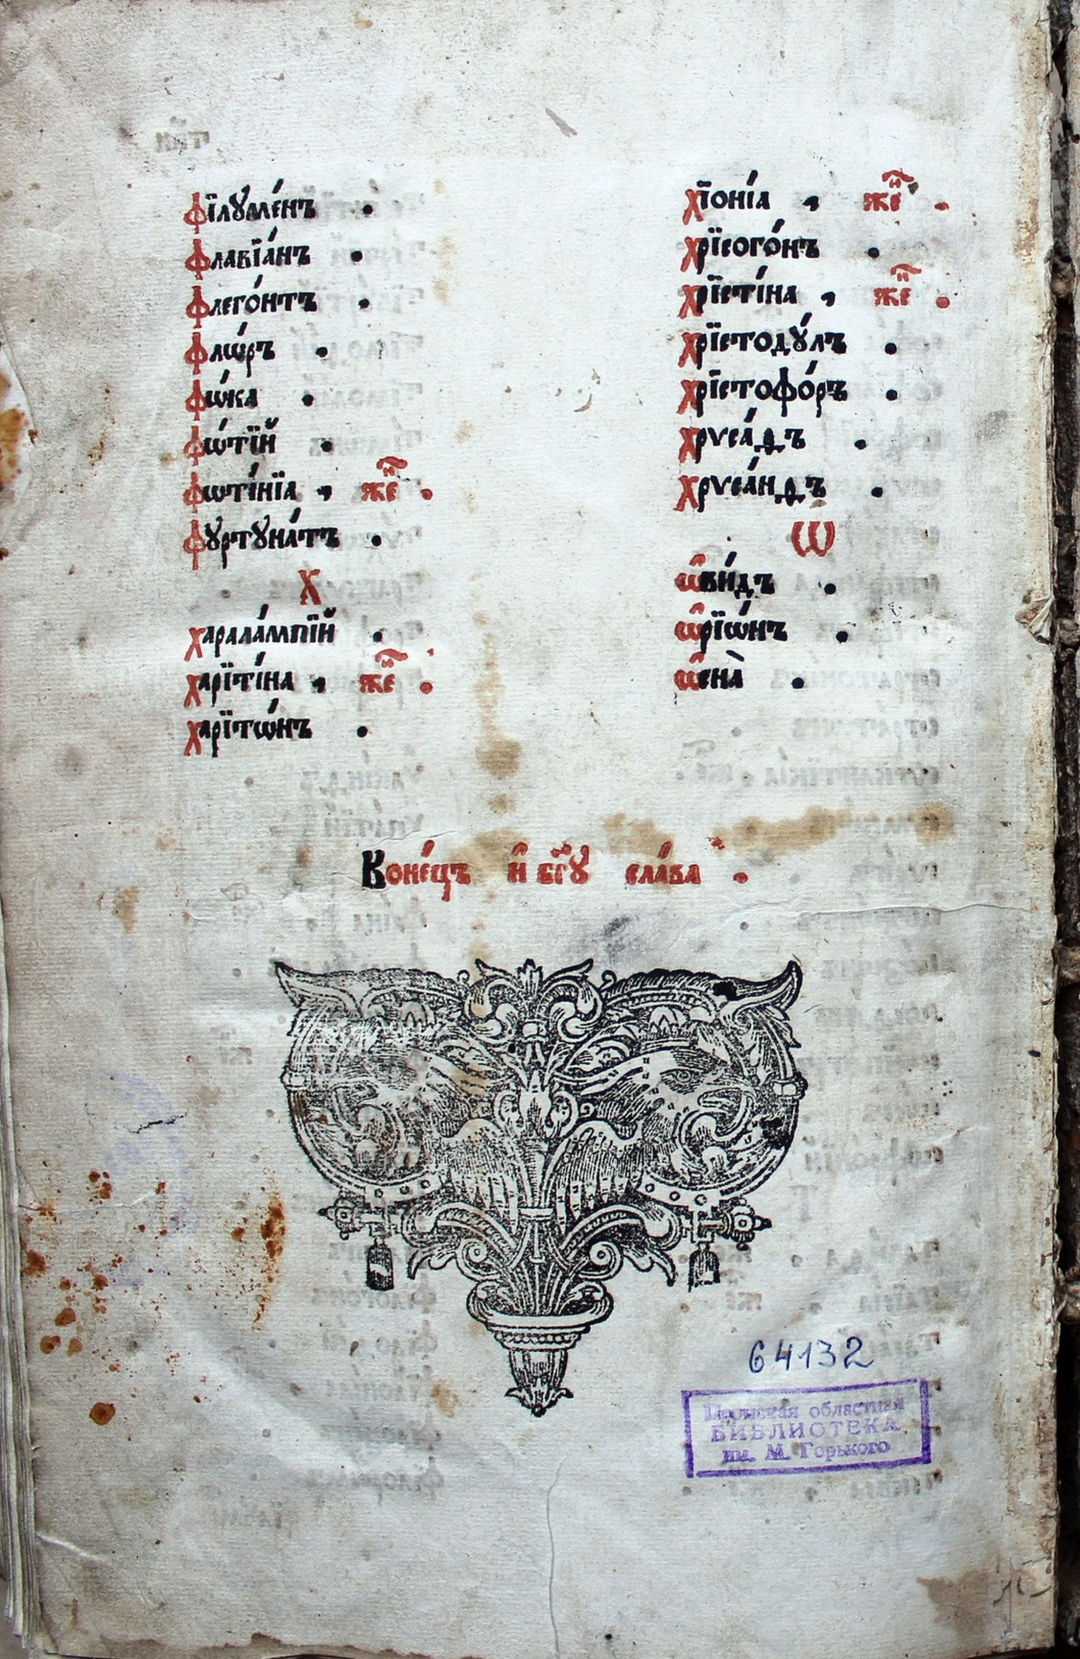 Фїлꙋме́нъ .
Флавїа́нъ .
Флего́нтъ .
Флѡ́ръ .
Фѡ́ка .
Фѡ́тїй .
Фѡті́нїа , же҃н .
Фꙋртꙋна́тъ .
Х
Харала́мпїй .
Харїті́на , же҃н .
Харїтѡ́нъ .
Хїоні́а , же҃н .
Хрїсого́нъ .
Хрїсті́на , же҃н .
Хрїстодꙋ́лъ .
Хрїстофо́ръ .
Хрѵса́ѳъ .
Хрѵса́нѳъ .
Ѡ
Ѡ҆ви́дъ .
Ѡ҆рїѡ́нъ .
Ѡ҆сна̀ .
Коне́цъ и҆ бг҃ꙋ сла́ва .
64132
областная
БИБЛИОТЕКА
им. М. Горького